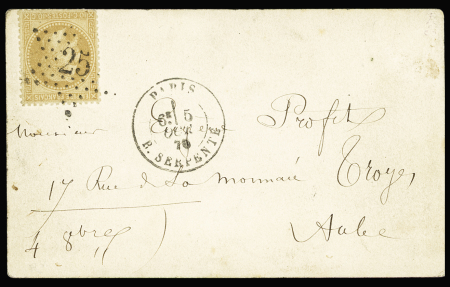 25
PARIS
6E 5
OCT.
70
R. SERPENTE
Monsieur Profit
17 Rue de La Monnaie Troyes
Aube
4 8bre